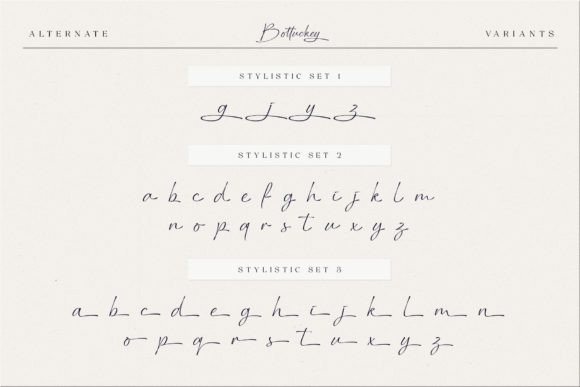 ALTERNATE
Bottuckey
VARIANTS
STYLISTIC SET 1
g j y z
STYLISTIC SET 2
a b c d e f g h i j k l m
n o p q r s t u x y z
STYLISTIC SET 3
a b c d e g h i j k l m n
o p q r s t u x y z